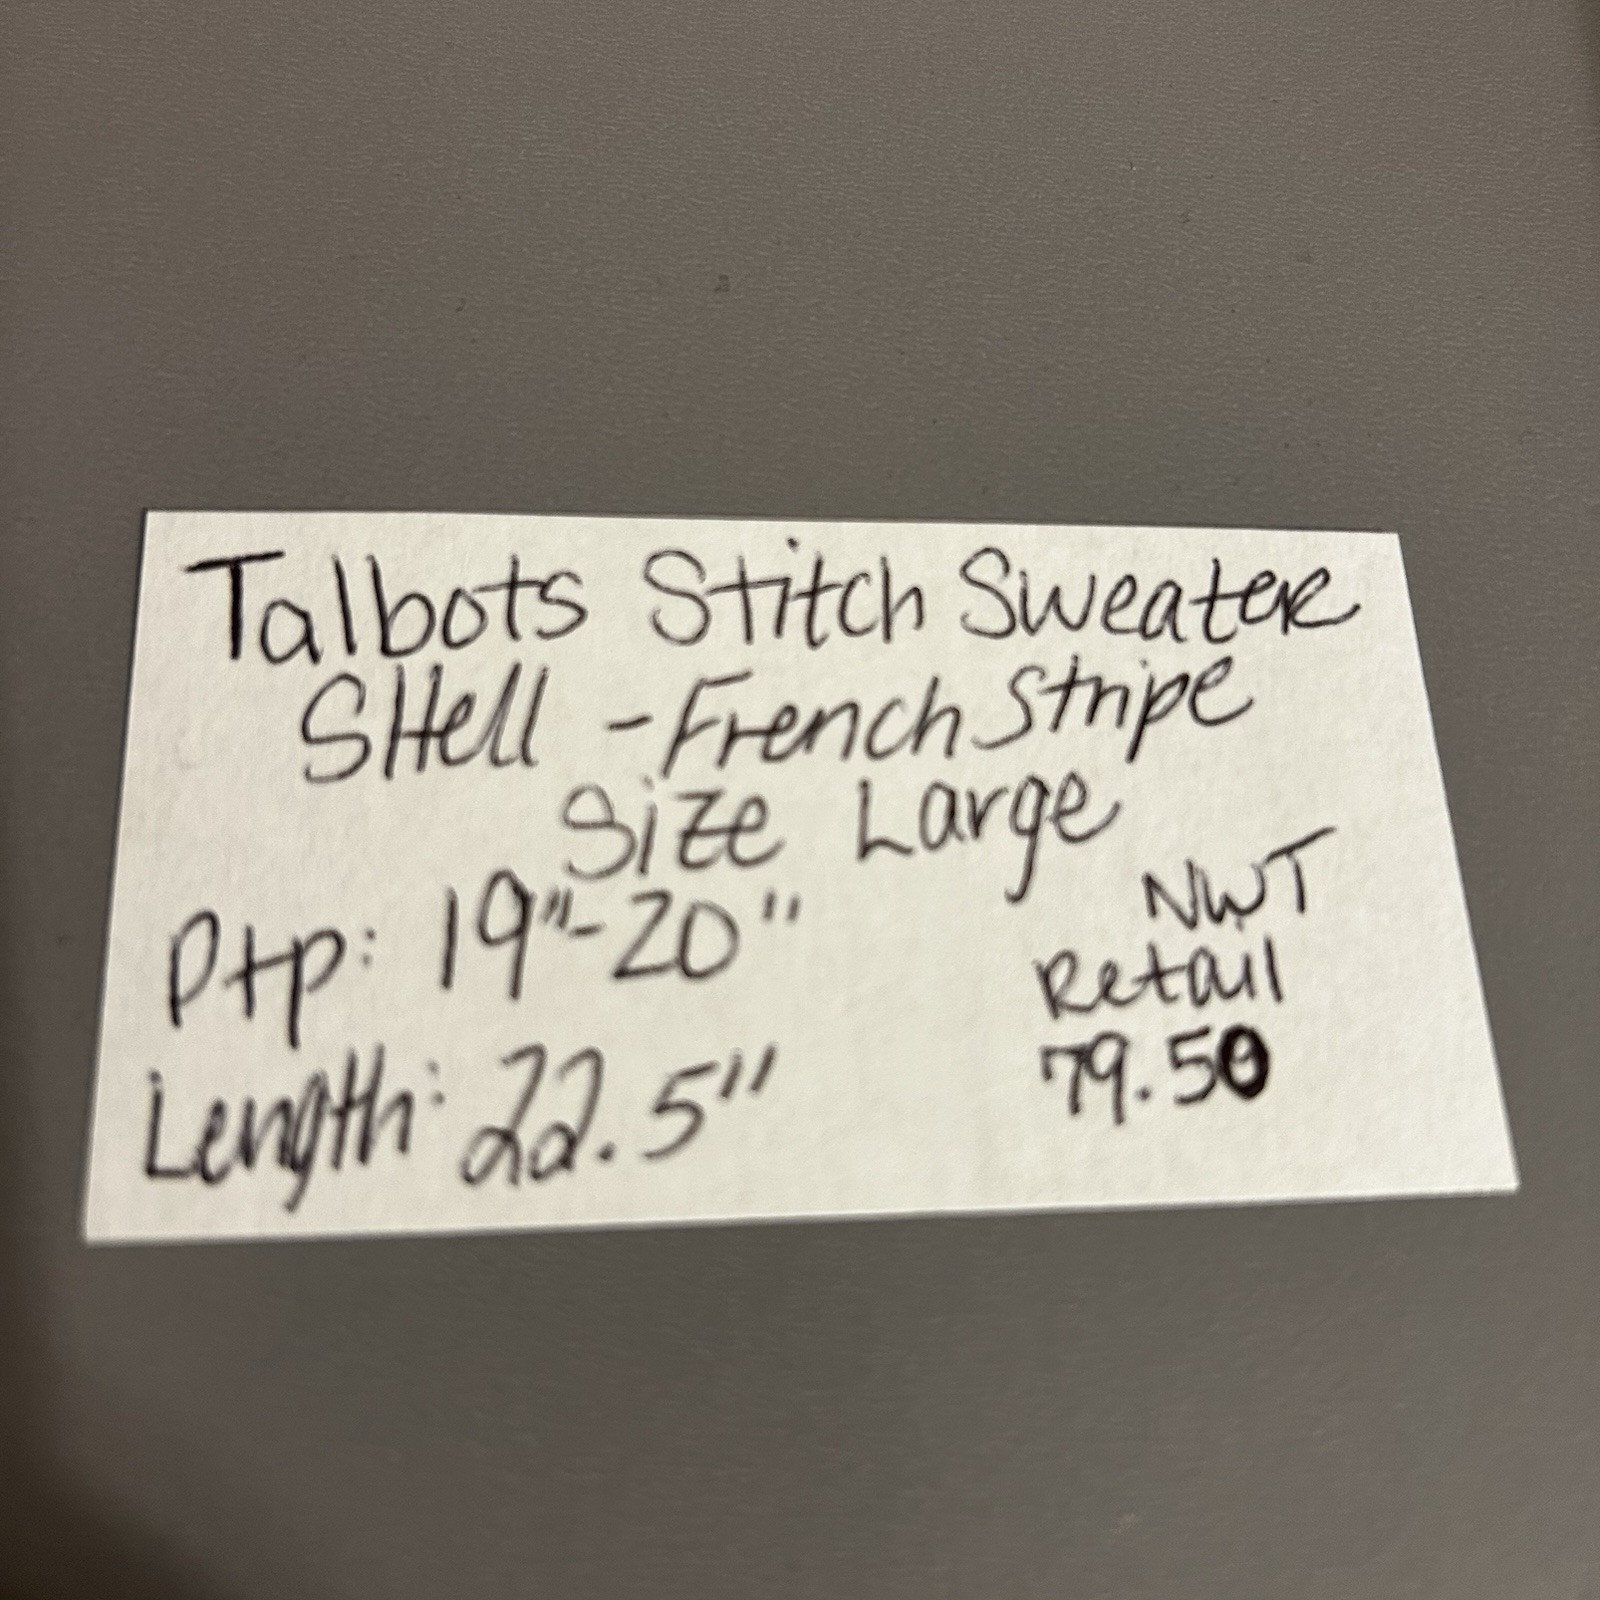 Talbots Stitch Sweater
SHell - French Stripe
Size Large
Ptp: 19"-20"
Length: 22.5"
NWT
Retail
79.50